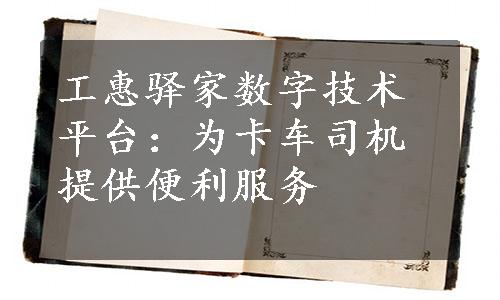 工惠驿家数字技术
平台：为卡车司机
提供便利服务